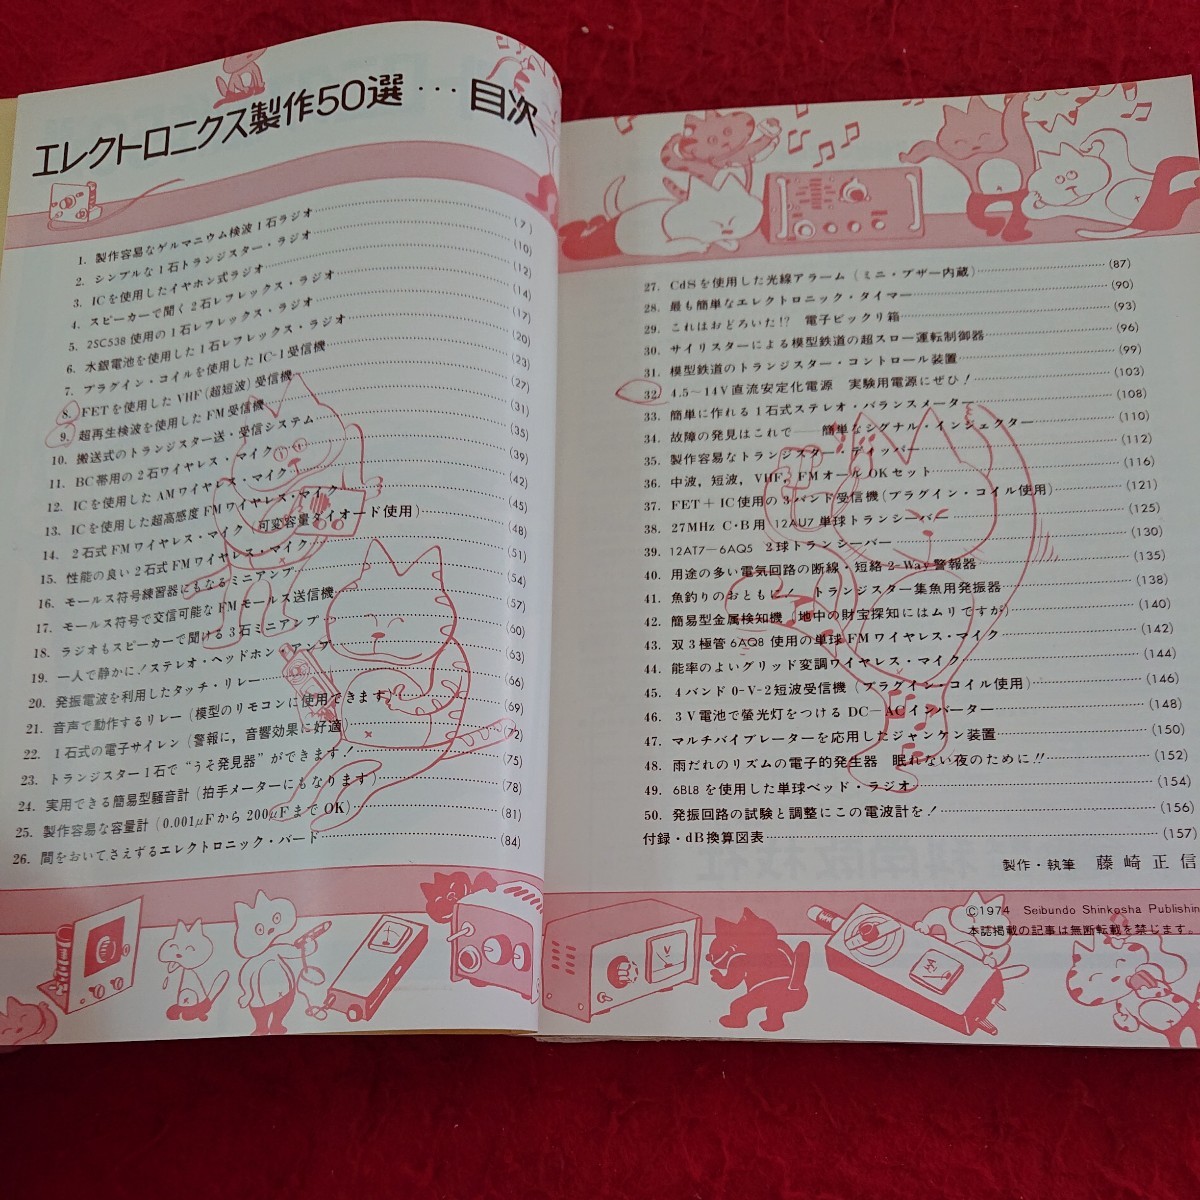 エレクトロニクス製作50選…目次
1. 製作容易なゲルマニウム検波1石ラジオ (7)
2. シンプルな1石トランジスター・ラジオ (10)
3. ICを使用したイヤホン式ラジオ (12)
4. スピーカーで聞く2石レフレックス・ラジオ (14)
5. 2SC538使用の1石レフレックス・ラジオ (17)
6. 水銀電池を使用した1石レフレックス・ラジオ (20)
7. プラグイン・コイルを使用したIC-1受信機 (23)
8. FETを使用したVHF(超短波)受信機 (27)
9. 超再生検波を使用したFM受信機 (31)
10. 搬送式のトランジスター送・受信システム (35)
11. BC帯用の2石ワイヤレス・マイク (39)
12. ICを使用したAMワイヤレス・マイク (42)
13. ICを使用した超高感度FMワイヤレス・マイク (45)
14. 2石式FMワイヤレス・マイク(可変容量ダイオード使用) (48)
15. 性能の良い2石式FMワイヤレス・マイク (51)
16. モールス符号練習器にもなるミニアンプ (54)
17. モールス符号で交信可能なFMモールス送信機 (57)
18. ラジオもスピーカーで聞ける3石ミニアンプ (60)
19. 一人で静かに!ステレオ・ヘッドホン・アンプ (63)
20. 発振電波を利用したタッチ・リレー (66)
21. 音声で動作するリレー(模型のリモコンに使用できます) (69)
22. 1石式の電子サイレン(警報に,音響効果に好適) (72)
23. トランジスター1石で"うそ発見器"ができます! (75)
24. 実用できる簡易型騒音計(拍手メーターにもなります) (78)
25. 製作容易な容量計(0.001μFから200μFまでOK) (81)
26. 間をおいてさえずるエレクトロニック・バード (84)
27. CdSを使用した光線アラーム(ミニ・ブザー内蔵) (87)
28. 最も簡単なエレクトロニック・タイマー (90)
29. これはおどろいた!? 電子ビックリ箱 (93)
30. サイリスターによる模型鉄道の超スロー運転制御器 (96)
31. 模型鉄道のトランジスター・コントロール装置 (99)
32. 4.5〜14V直流安定化電源 実験用電源にぜひ! (103)
33. 簡単に作れる1石式ステレオ・バランスメーター (108)
34. 故障の発見はこれで──簡単なシグナル・インジェクター (110)
35. 製作容易なトランジスター・ディッパー (112)
36. 中波,短波,VHF,FMオールOKセット (116)
37. FET+IC使用の3バンド受信機(プラグイン・コイル使用) (121)
38. 27MHz C・B用 12AU7単球トランシーバー (125)
39. 12AT7−6AQ5 2球トランシーバー (130)
40. 用途の多い電気回路の断線・短絡2-Way警報器 (135)
41. 魚釣りのおともに! トランジスター集魚用発振器 (138)
42. 簡易型金属検知機(地中の財宝探知にはムリですが) (140)
43. 双3極管6AQ8使用の単球FMワイヤレス・マイク (142)
44. 能率のよいグリッド変調ワイヤレス・マイク (144)
45. 4バンド0-V-2短波受信機(プラグイン・コイル使用) (146)
46. 3V電池で螢光灯をつけるDC−ACインバーター (148)
47. マルチバイブレーターを応用したジャンケン装置 (150)
48. 雨だれのリズムの電子的発生器 眠れない夜のために!! (152)
49. 6BL8を使用した単球ベッド・ラジオ (154)
50. 発振回路の試験と調整にこの電波計を! (156)
付録・dB換算図表 (157)
製作・執筆 藤崎正信
©1974 Seibundo Shinkosha Publishin
本誌掲載の記事は無断転載を禁じます。